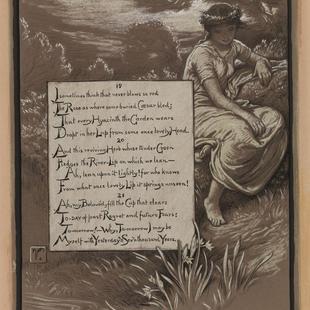 19
I sometimes think that never blows so red
The Rose as where some buried Cæsar bled;
That every Hyacinth the Garden wears
Dropt in her Lap from some once lovely Head.
20
And this reviving Herb whose tender Green
Fledges the River-Lip on which we lean—
Ah, lean upon it lightly! for who knows
From what once lovely Lip it springs unseen!
21
Ah, my Belovéd, fill the Cup that clears
To-day of past Regret and future Fears:
Tomorrow!—Why, Tomorrow I may be
Myself with Yesterday's Sev'n thousand Years.
V